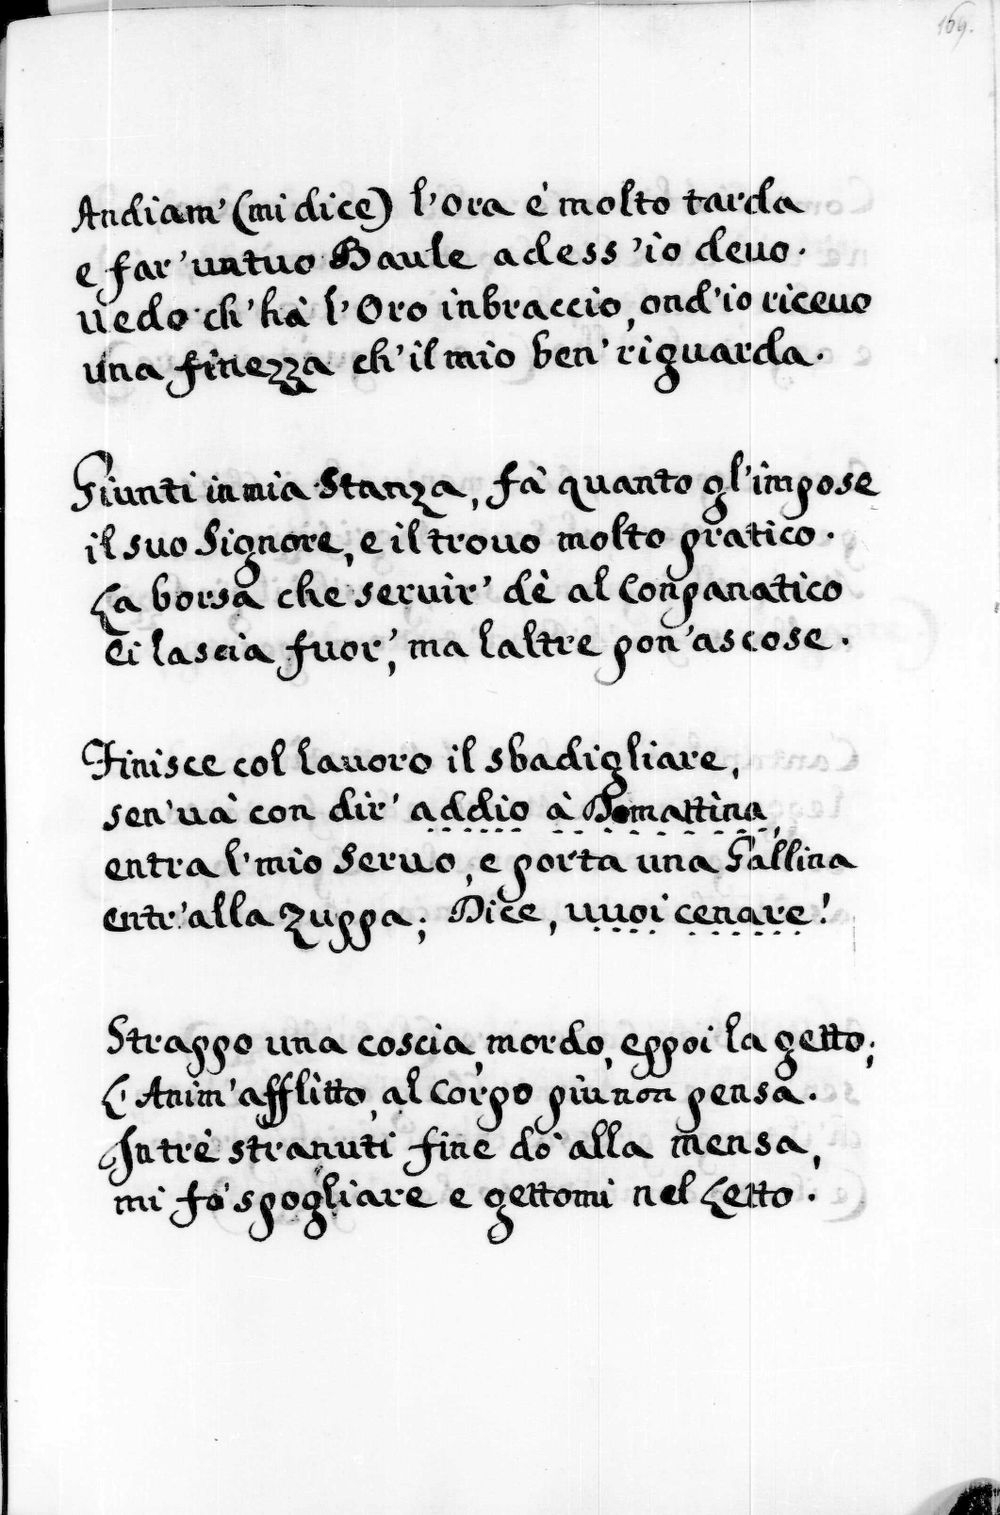 169.
Andiam' (mi dice) l'ora è molto tarda
e far' un tuo Baule adess' io deuo.
uedo ch' hà l'Oro in braccio, ond' io riceuo
una finezza ch' il mio ben' riguarda.
Giunti in mia Stanza, fà quanto gl'impose
il suo Signore, e il trouo molto pratico.
La borsa che seruir' dè al Conpanatico
Ei lascia fuor', ma laltre pon' ascose.
Finisce col lauoro il sbadigliare,
sen' uà con dir' addio à Domattina,
entra l' mio Seruo, e porta una Gallina
entr' alla Zuppa; Dice, uuoi cenare!
Strappo una coscia, mordo, eppoi la getto;
L' Anim' afflitto, al Corpo più non pensa.
In trè stranuti fine dò alla mensa,
mi fò spogliare e gettomi nel Letto.